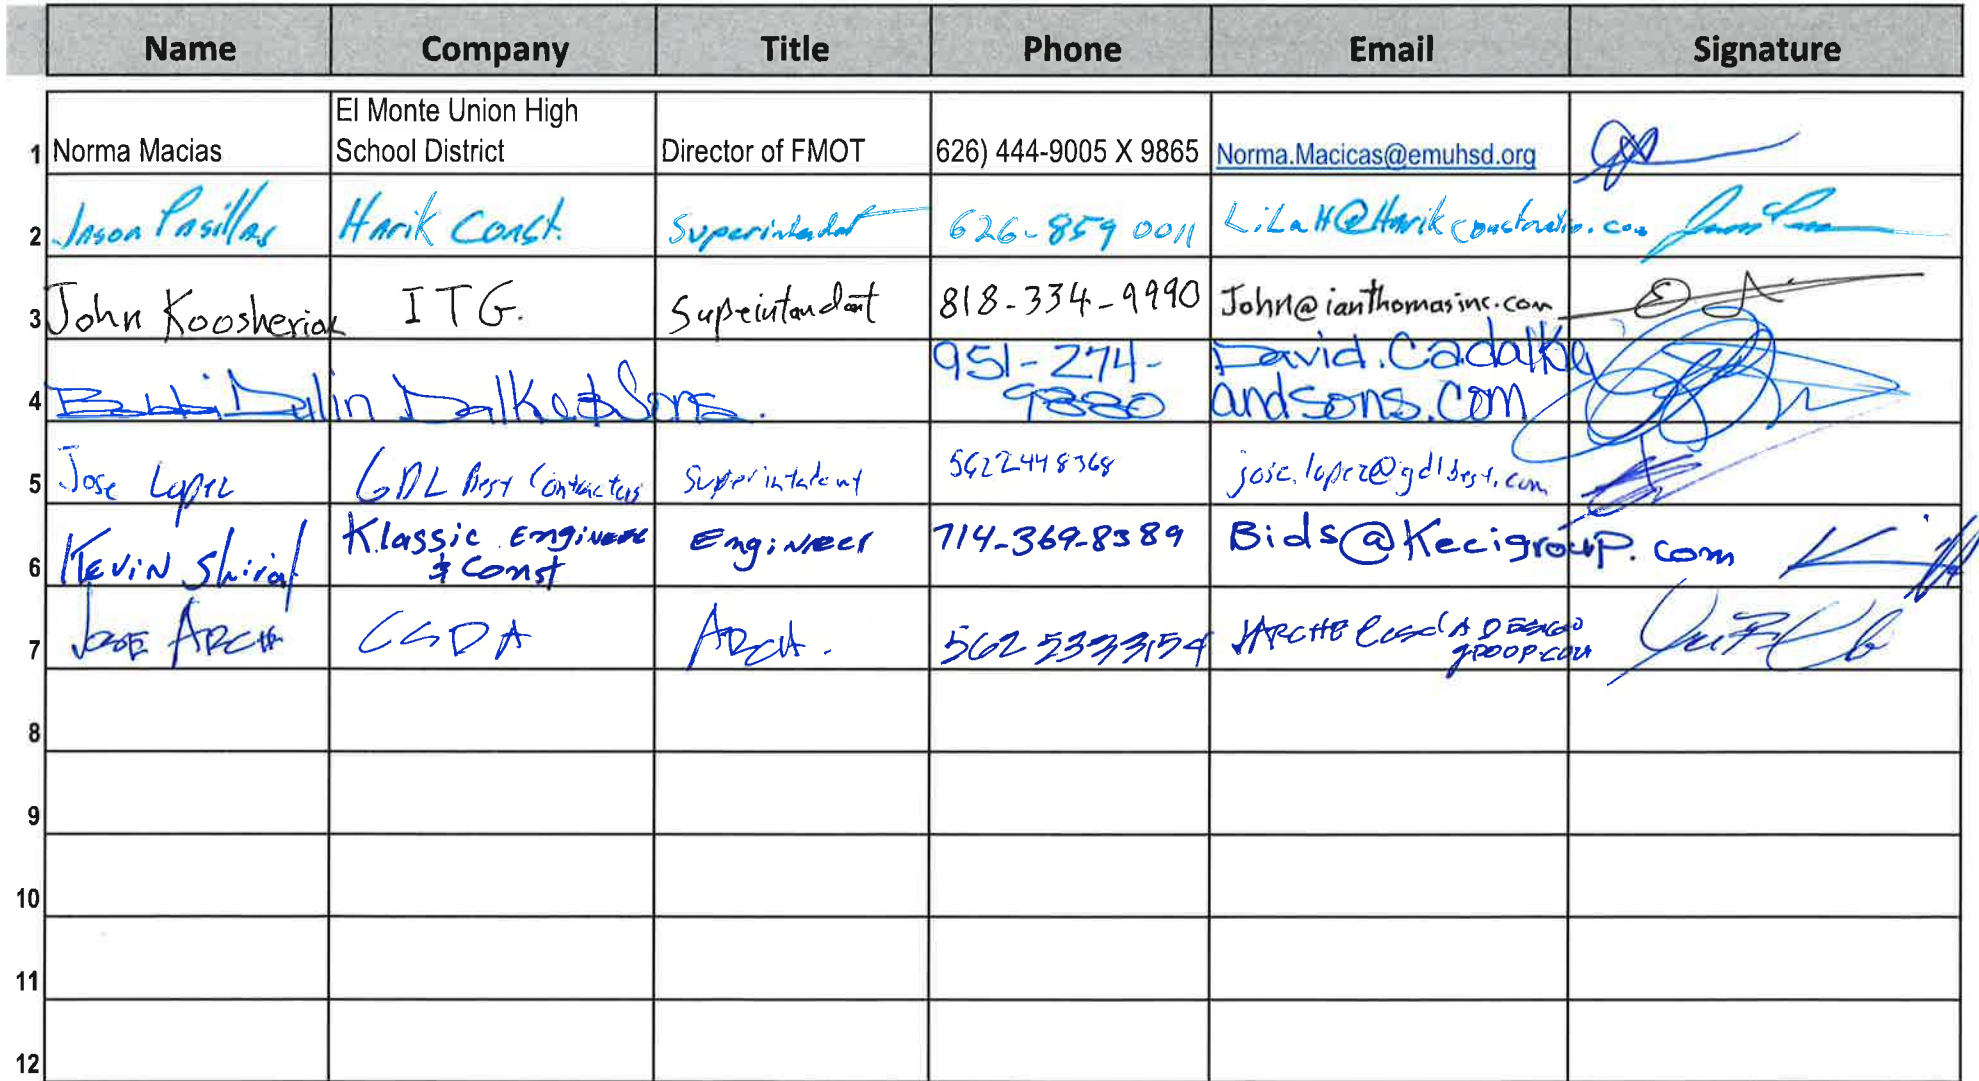 Name Company Title Phone Email Signature
El Monte Union High
1 Norma Macias School District Director of FMOT 626) 444-9005 X 9865 Norma.Macicas@emuhsd.org
2 Jason Pasillas Harik Const. Superintendat 626-859 0011 LilaH@Harikconstructio.com
3 John Koosherian ITG. Supeintandant 818-334-9990 John@ianthomasinc.com
951-274- David.Cadalke
4 Dalke & Sons. 9880 andsons.com
5 Jose Lopez GDL Best Contractors Superintendent 5622448368 jose.lopez@gdlbest.com
6 Kevin Shiraf Klassic Engineer Engineer 714-369-8389 Bids@Kecigroup.com
& Const
7 Jose Arch CSDA Arch. 562 5333154
group.com
8
9
10
11
12